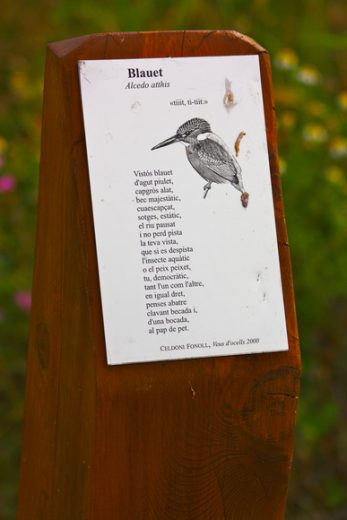 Blauet
Alcedo atthis
«tiiit, ti-tiit.»
Vistós blauet
d'agut piulet,
capgròs alat,
bec majestàtic,
cuaescapçat,
sotges, estàtic,
el riu pausat
i no perd pista
la teva vista,
que si es despista
l'insecte aquàtic
o el peix peixet,
tu, democràtic,
tant l'un com l'altre,
en igual dret,
penses abatre
clavant becada i,
d'una bocada,
al pap de pet.
CELDONI FONOLL, Veus d'ocells 2000